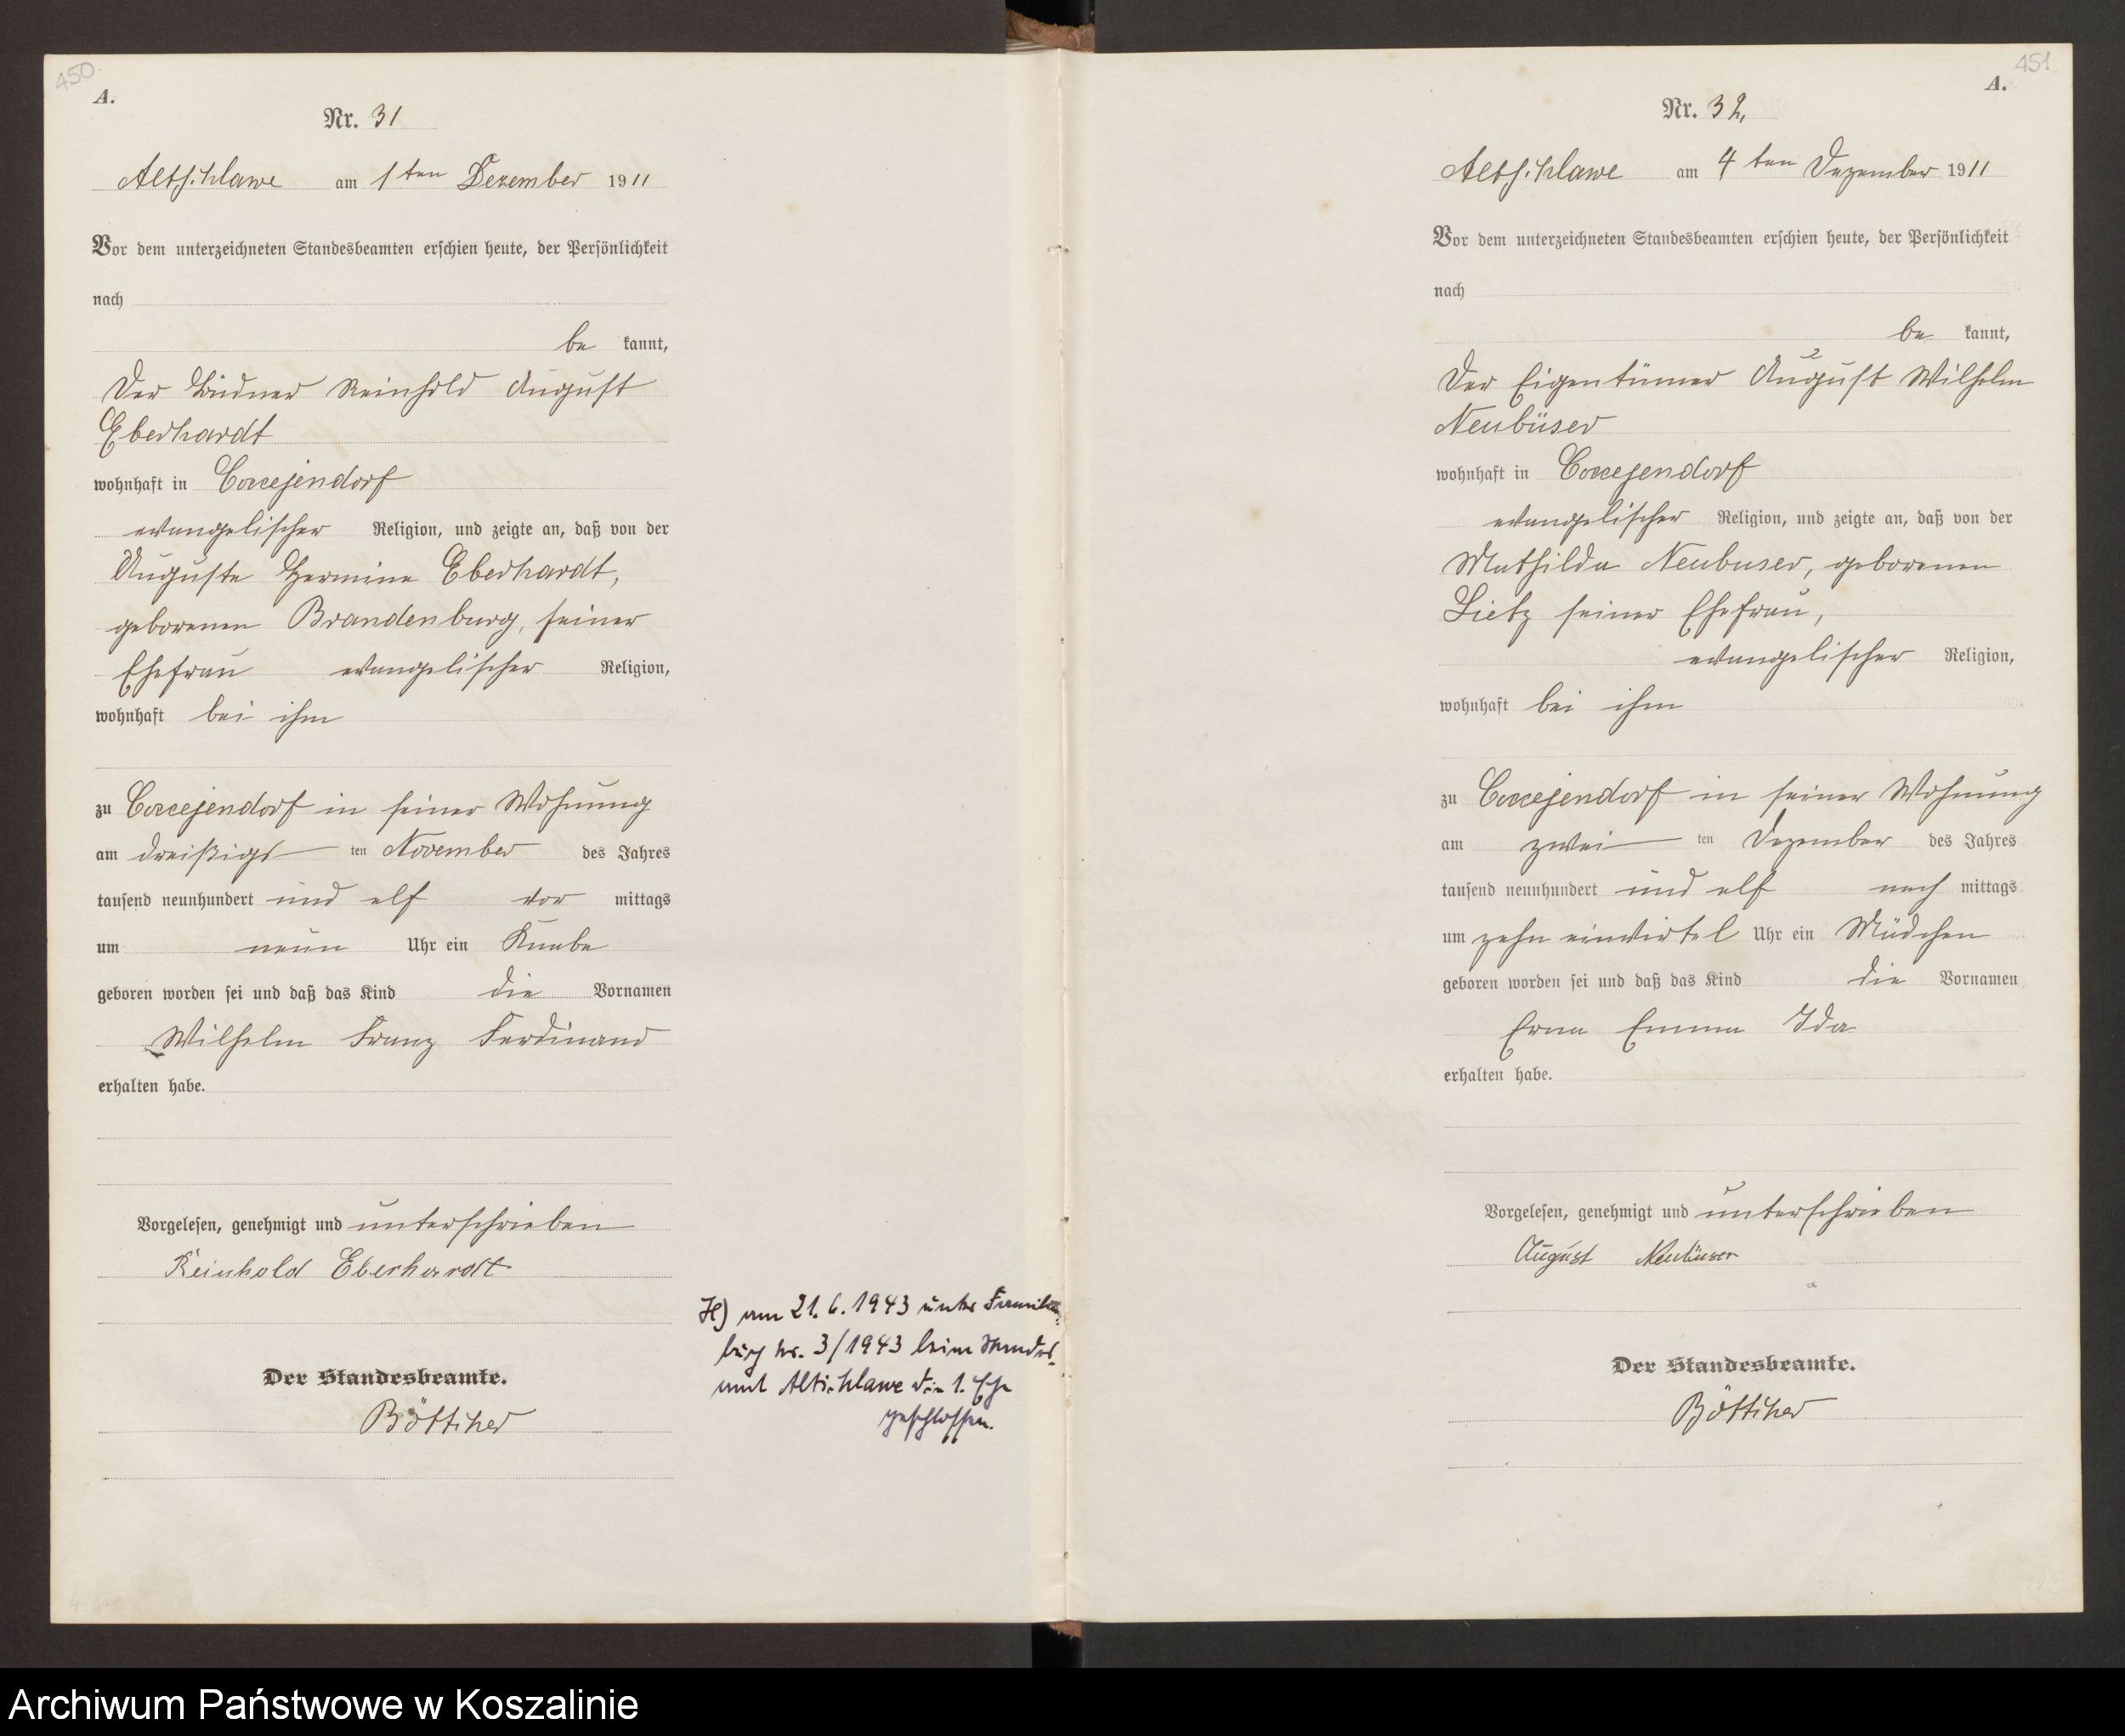 450.
A.
Nr. 31
Altschlawe am 1ten Dezember 1911
Vor dem unterzeichneten Standesbeamten erschien heute, der Persönlichkeit
nach
be kannt,
Der Büdner Reinhold August
Eberhardt
wohnhaft in Coccejendorf
evangelischer Religion, und zeigte an, daß von der
Auguste Hermine Eberhardt,
geborenen Brandenburg, seiner
Ehefrau evangelischer Religion,
wohnhaft bei ihm
zu Coccejendorf in seiner Wohnung
am dreißigs ten November des Jahres
tausend neunhundert und elf vor mittags
um neun Uhr ein Knabe
geboren worden sei und daß das Kind die Vornamen
Wilhelm Franz Ferdinand
erhalten habe.
Vorgelesen, genehmigt und unterschrieben
Reinhold Eberhardt
Der Standesbeamte.
Böttcher
H) am 21.6.1943 unter Familien-
buch Nr. 3/1943 beim Standes-
amt Altschlawe die 1. Ehe
geschlossen.
451
A.
Nr. 32,
Altschlawe am 4ten Dezember 1911
Vor dem unterzeichneten Standesbeamten erschien heute, der Persönlichkeit
nach
be kannt,
Der Eigentümer August Wilhelm
Neubüser
wohnhaft in Coccejendorf
evangelischer Religion, und zeigte an, daß von der
Mathilda Neubuser, geborenen
Lietz seiner Ehefrau,
evangelischer Religion,
wohnhaft bei ihm
zu Coccejendorf in seiner Wohnung
am zwei ten Dezember des Jahres
tausend neunhundert und elf nach mittags
um zehn einvirtel Uhr ein Mädchen
geboren worden sei und daß das Kind die Vornamen
Erna Emma Ida
erhalten habe.
Vorgelesen, genehmigt und unterschrieben
August Neubüser
Der Standesbeamte.
Böttcher
Archiwum Państwowe w Koszalinie